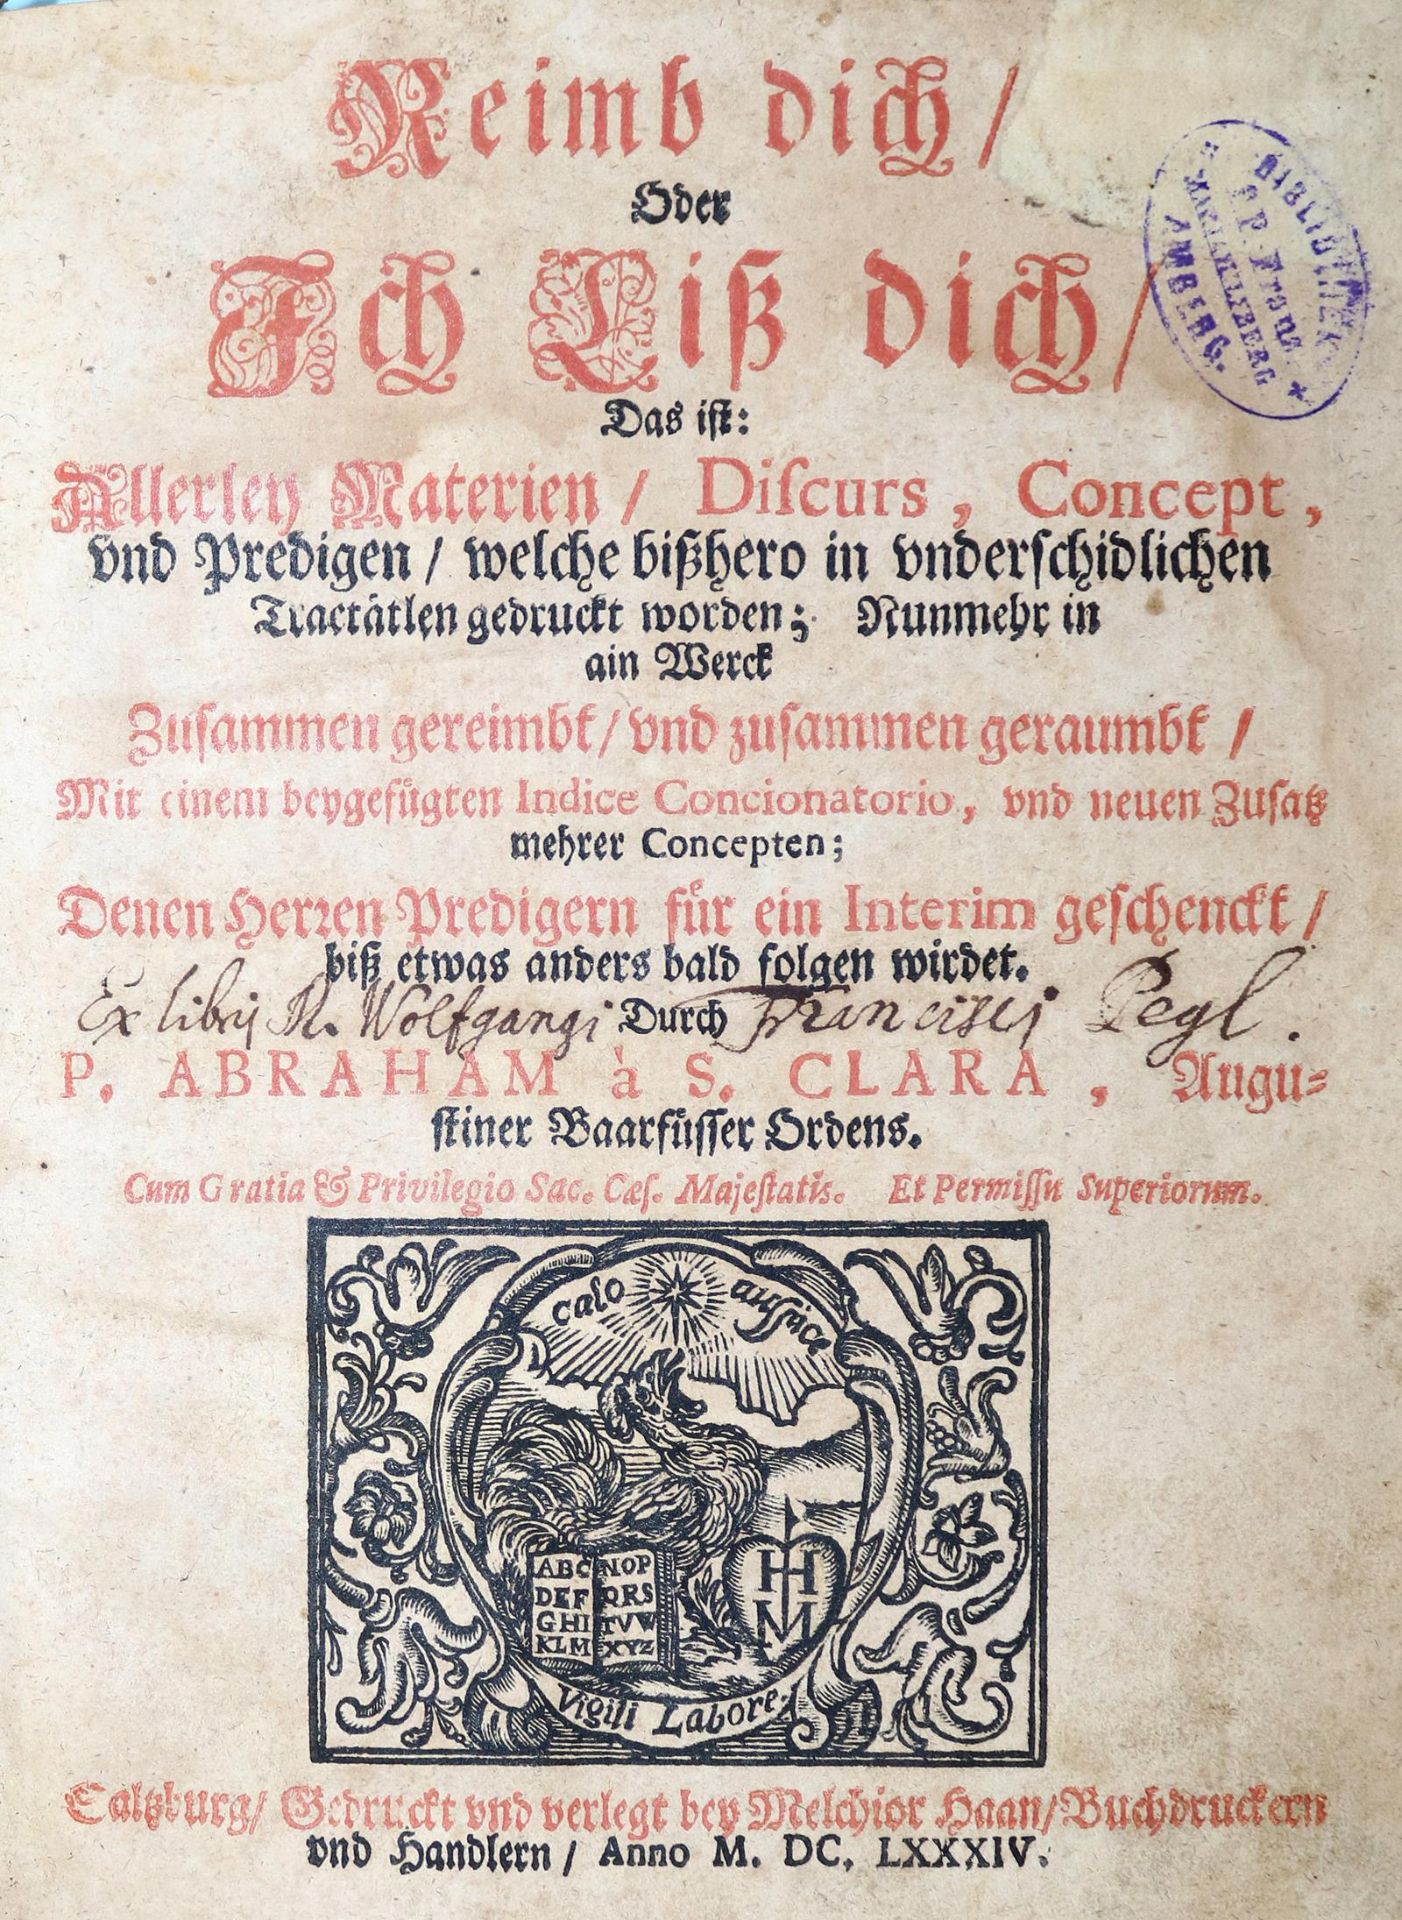 Reimb dich /
Oder
Ich Liß dich /
Das iſt:
Allerley Materien / Diſcurs, Concept,
vnd Predigen / welche bißhero in vnderſchidlichen
Tractätlen gedruckt worden; Nunmehr in
ain Werck
Zuſammen gereimbt / vnd zuſammen geraumbt /
Mit einem beygefügten Indice Concionatorio, vnd neuen Zuſatz
mehrer Concepten;
Denen Herren Predigern für ein Interim geſchenckt /
biß etwas anders bald folgen wirdet.
Ex libris R. Wolfgangi Durch Francisci Pegl.
P. ABRAHAM à S. CLARA, Augu-
ſtiner Baarfüſſer Ordens.
Cum Gratia & Privilegio Sac. Cæſ. Majeſtatis. Et Permiſſu Superiorum.
BIBLIOTHEK
P.P. Franz.
MARIAHILFBERG
AMBERG.
calo auſpice
ABC NOP
DEF QRS
GHI TVW
KLM XYZ
H H
M
Vigili Labore
Saltzburg / Gedruckt vnd verlegt bey Melchior Haan / Buchdruckern
vnd Handlern / Anno M. DC. LXXXIV.